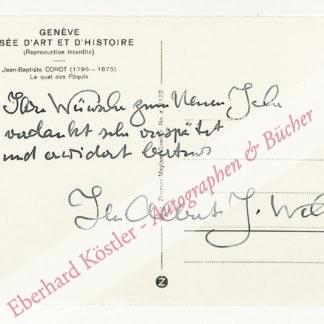 GENÈVE
SÉE D'ART ET D'HISTOIRE
(Reproduction interdite)
Jean-Baptiste COROT (1796-1875)
Le quai des Pâquis
Ihre Wünsche zum Neuen Jahr
verdankt sehr verspätet
und erwidert bestens
Ihr Albert J. Wel
Eberhard Köstler - Autographen & Bücher